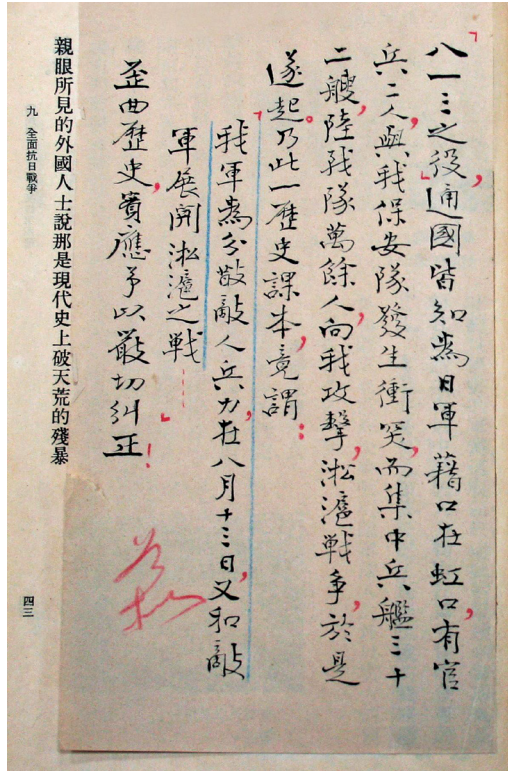 「八一三之役」,通國皆知為日軍藉口在虹口,有官
兵二人,與我保安隊發生衝突,而集中兵艦三十
二艘,陸戰隊萬餘人,向我攻擊,淞滬戰爭,於是
遂起。乃此一歷史課本,竟謂:
「我軍為分散敵人兵力,在八月十三日,又和敵
軍展開淞滬之戰……」
歪曲歷史,實應予以嚴切糾正!
親眼所見的外國人士說那是現代史上破天荒的殘暴
九 全面抗日戰爭
四三